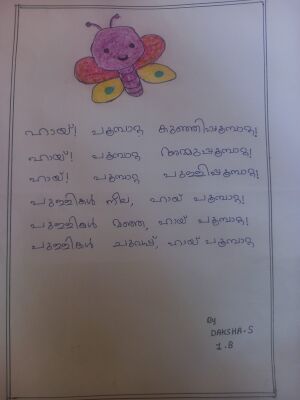 ഹായ്! പൂമ്പാറ്റ കുഞ്ഞിപ്പൂമ്പാറ്റ!
ഹായ്! പൂമ്പാറ്റ അമ്മുപ്പൂമ്പാറ്റ!
ഹായ്! പൂമ്പാറ്റ പുള്ളിപ്പൂമ്പാറ്റ!
പുള്ളികൾ നീല, ഹായ് പൂമ്പാറ്റ!
പുള്ളികൾ മഞ്ഞ, ഹായ് പൂമ്പാറ്റ!
പുള്ളികൾ ചുവപ്പ്, ഹായ് പൂമ്പാറ്റ
By
DAKSHA.S
1.B